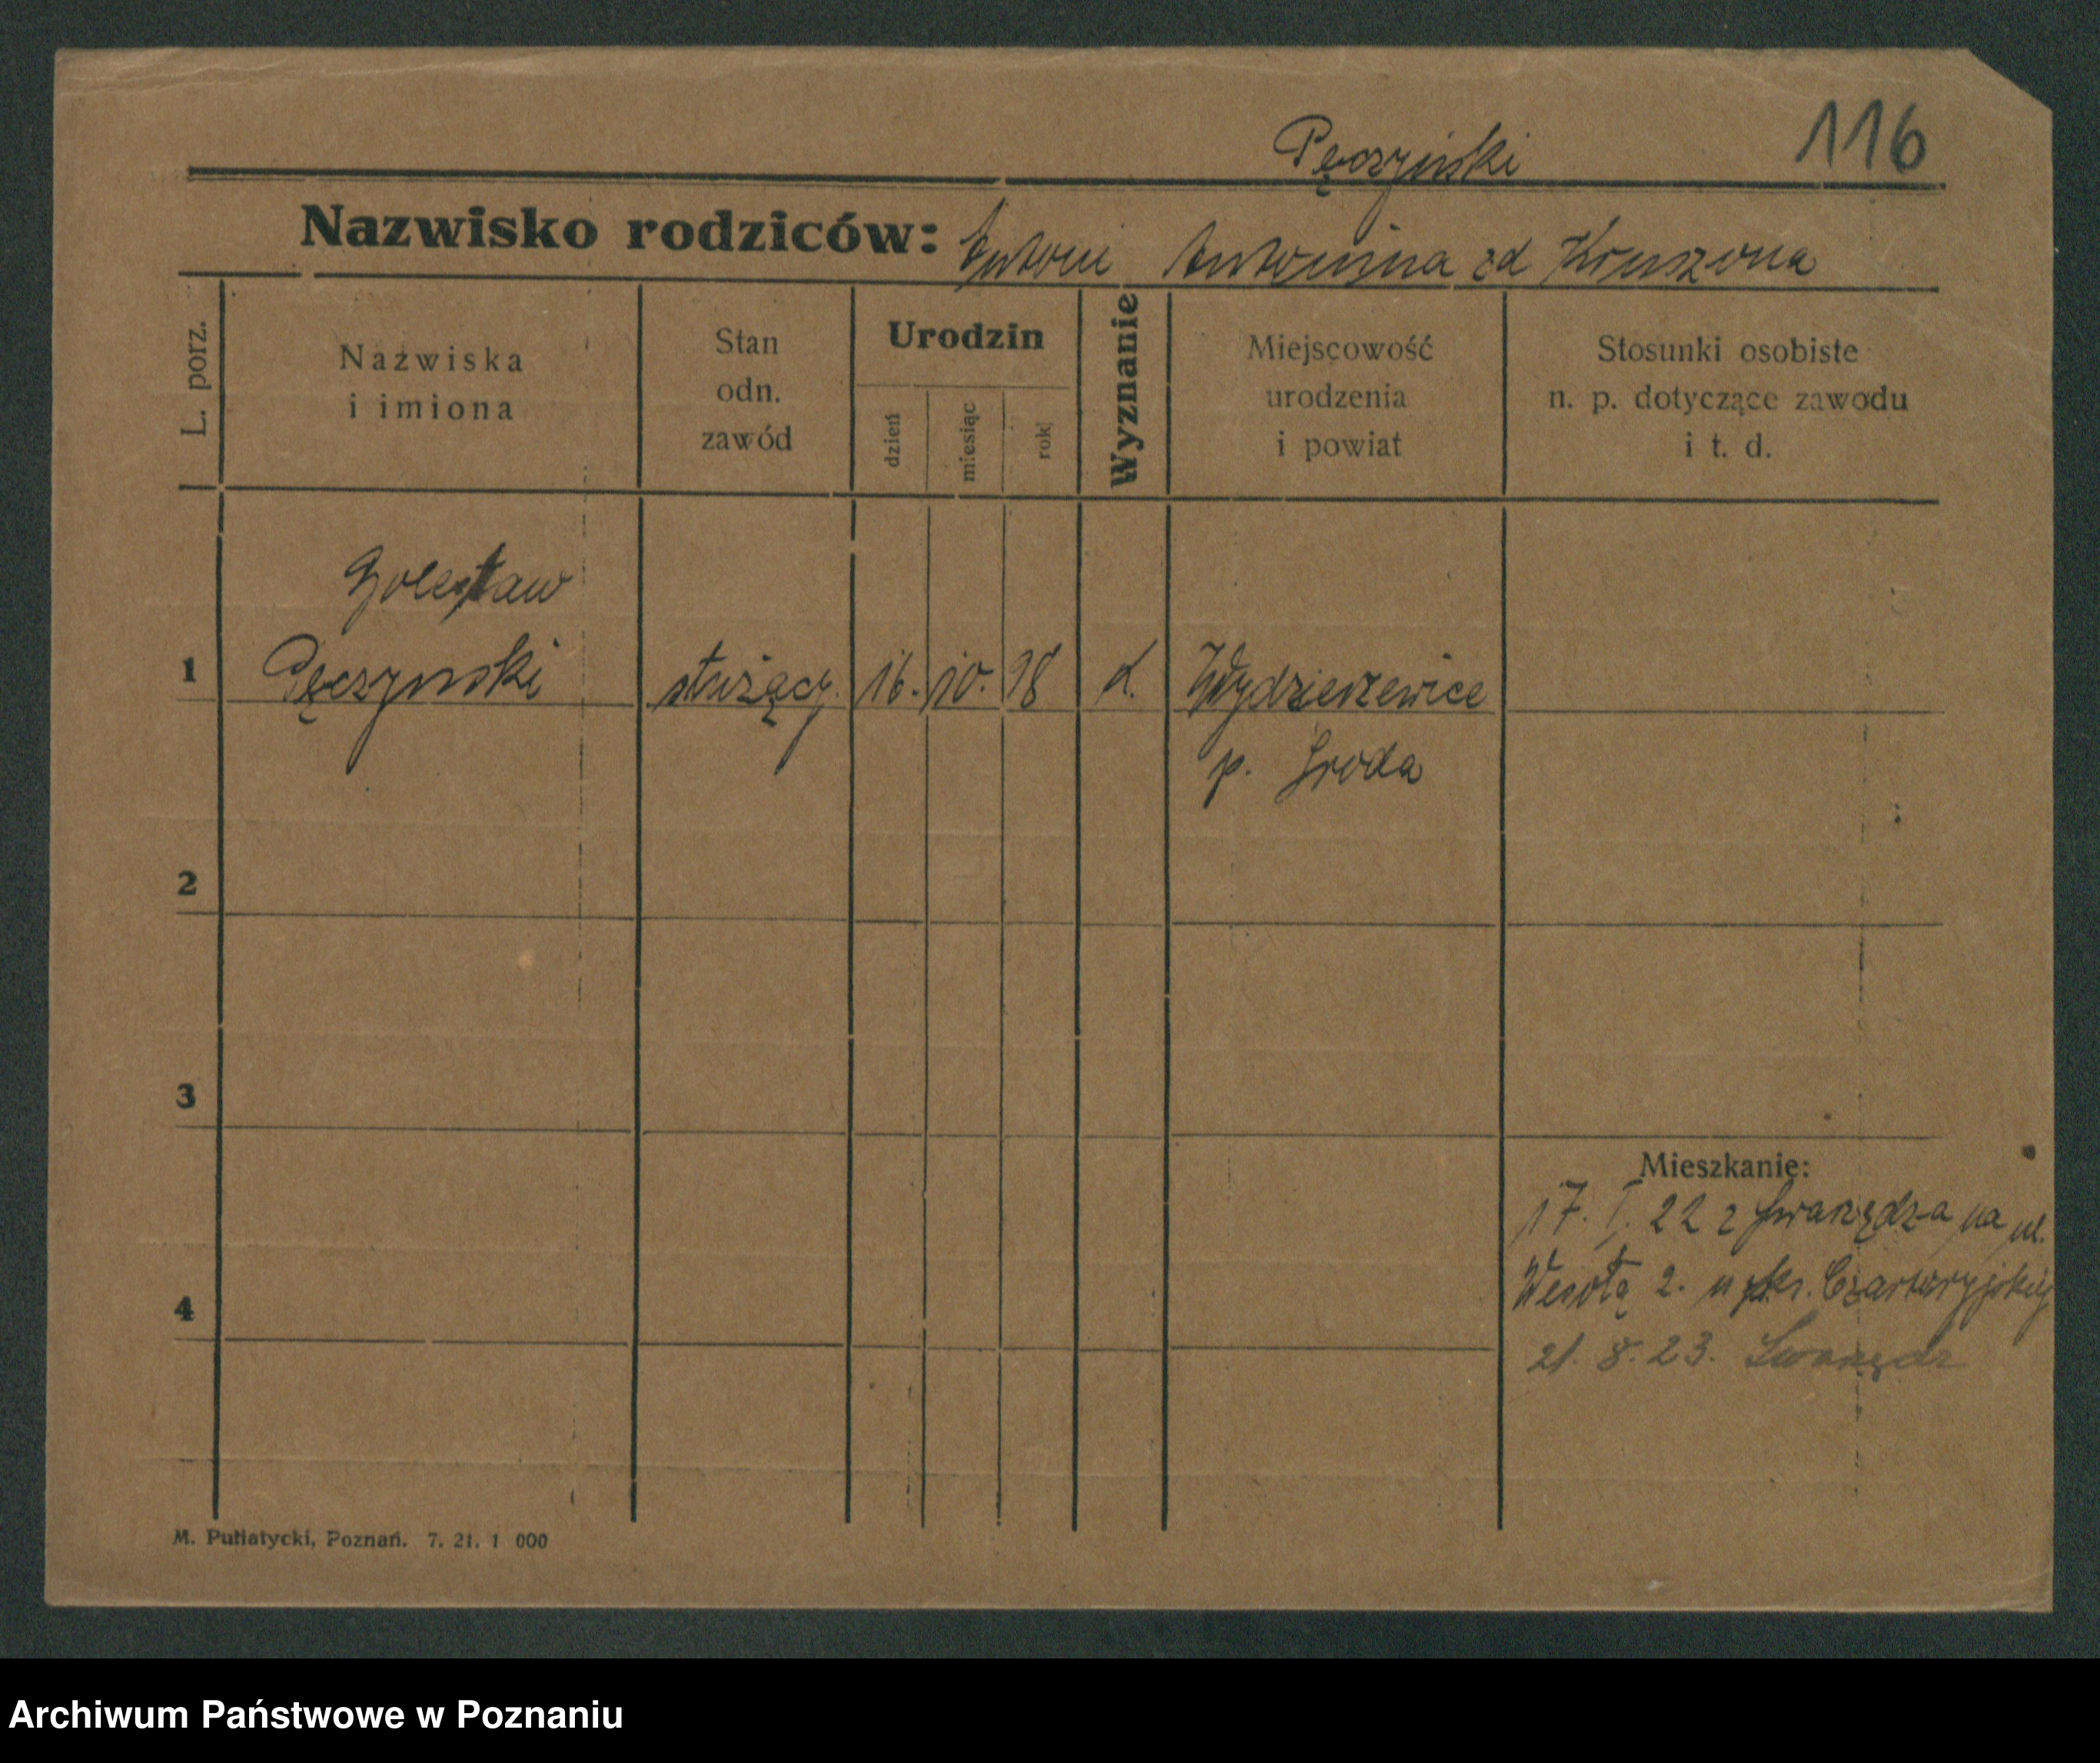 Pęczyński 116
Nazwisko rodziców: Antoni Antonina zd Kruszona
L. porz.
Nazwiska
i imiona
Stan
odn.
zawód
Urodzin
dzień
miesiąc
rok
Wyznanie
Miejscowość
urodzenia
i powiat
Stosunki osobiste
n. p. dotyczące zawodu
i t. d.
Bolesław
1 Pęczynski służący. 16. 10. 98 k.
p. Sroda
2
3
Mieszkanie:
17. I. 22 z Swarzędza na ul.
Wesołą 2. u Czartoryjskiej
4
21. 8. 23. Swarzędz
M. Putiatycki, Poznań. 7. 21. 1 000
Archiwum Państwowe w Poznaniu